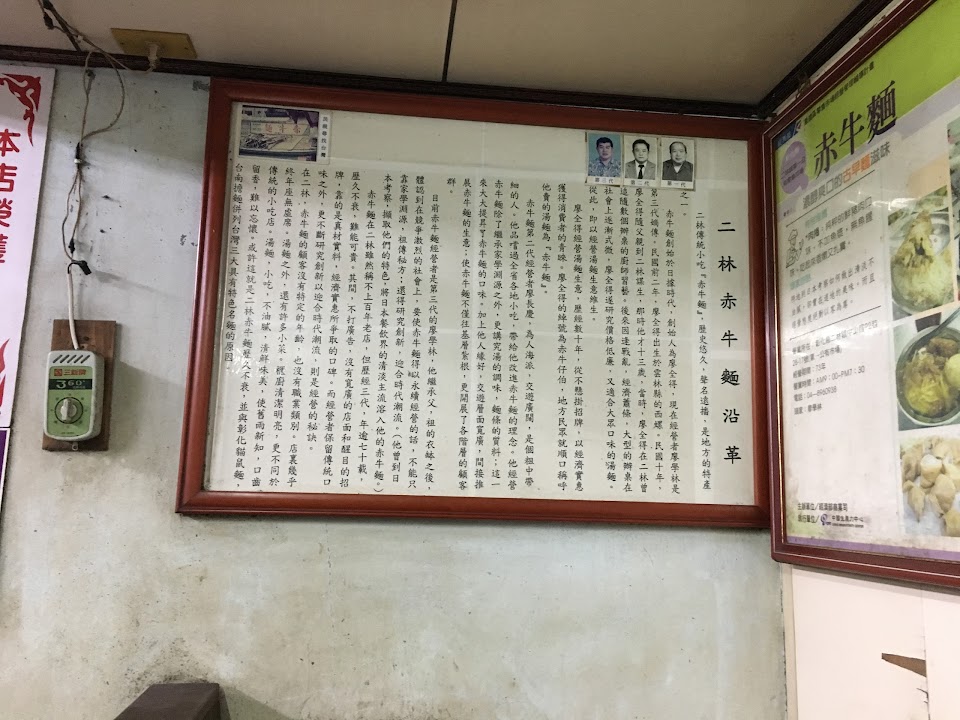 二林赤牛麵沿革
二林傳統小吃『赤牛麵』,歷史悠久,聲名遠播,是地方的特產
之一。
赤牛麵創始於日據時代,創始人為廖全得,現在經營者廖學林是
第三代嫡傳。民國前二年,廖全得出生於雲林縣的西螺。民國十年,
廖全得隨父親到二林謀生,那時他才十三歲,當時,廖全得在二林曾
追隨數個辦桌的廚師習藝。後來因逢戰亂,經濟蕭條,大型的辦桌在
社會上逐漸式微,廖全得遂研究價格低廉,又適合大眾口味的湯麵。
從此,即以經營湯麵生意維生。
廖全得經營湯麵生意,歷經數十年,從不懸掛招牌,以經濟實惠
獲得消費者的青睞。廖全得的綽號為赤牛仔伯,地方民眾就順口稱呼
他賣的湯麵為『赤牛麵』。
赤牛麵第二代經營者廖長慶,為人海派,交遊廣闊,是個粗中帶
細的人。他品嚐過全省各地小吃,帶給他改進赤牛麵的理念。他經營
赤牛麵除了繼承家學淵源之外,更講究湯的調味,麵條的質料;這一
來大大提昇了赤牛麵的口味。加上他人緣好,交遊層面寬廣,間接推
展赤牛麵的生意;使赤牛麵不僅往基層紮根,更開展了各階層的顧客
群。
目前赤牛麵經營者是第三代的廖學林,他繼承父,祖的衣缽之後,
體認到在競爭激烈的社會上,要使赤牛麵得以永續經營的話,不能只
靠家學淵源,祖傳秘方;還得研究創新,迎合時代潮流。(他曾到日
本考察,擷取他們的特色,將日本餐飲界的清淡主流溶入他的赤牛麵。)
赤牛麵在二林雖然稱不上百年老店,但歷經三代,年逾七十載,
歷久不衰,難能可貴。其間,不打廣告,沒有寬廣的店面和醒目的招
牌,靠的是真材實料,經濟實惠所爭取的口碑。而經營者保留傳統口
味之外,更不斷研究創新以迎合時代潮流,則是經營的秘訣。
在二林,赤牛麵的顧客沒有特定的年齡,也沒有職業類別。店裏幾乎
終年座無虛席。湯麵之外,還有許多小菜。櫥廚清潔明亮,更不同於
傳統的小吃店。湯麵,小吃,不油膩,清鮮味美,使舊雨新知,口齒
留香,難以忘懷。或許這就是二林赤牛麵歷久不衰,並與彰化貓鼠麵,
台南擔麵併列台灣三大具有特色名麵的原因。
第三代
第二代
第一代
本店榮獲
三朝牌
360°
赤牛麵
濃郁爽口的古早麵滋味
主辦單位/經濟部商業司
執行單位/中國生產力中心